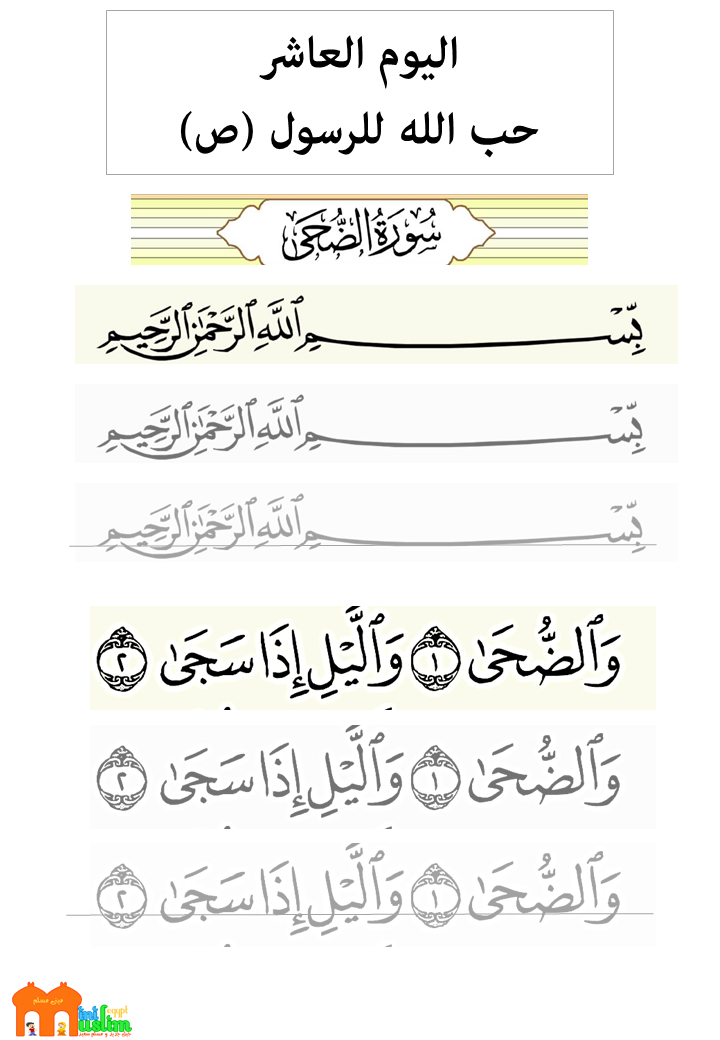 اليوم العاشر
حب الله للرسول (ص)
سُورَةُ الضُّحَىٰ
بِّسْمِ ٱللَّهِ ٱلرَّحْمَٰنِ ٱلرَّحِيمِ
بِّسْمِ ٱللَّهِ ٱلرَّحْمَٰنِ ٱلرَّحِيمِ
بِّسْمِ ٱللَّهِ ٱلرَّحْمَٰنِ ٱلرَّحِيمِ
وَٱلضُّحَىٰ ١ وَٱلَّيْلِ إِذَا سَجَىٰ ٢
وَٱلضُّحَىٰ ١ وَٱلَّيْلِ إِذَا سَجَىٰ ٢
وَٱلضُّحَىٰ ١ وَٱلَّيْلِ إِذَا سَجَىٰ ٢
مينى مسلم
mini egypt
muslim